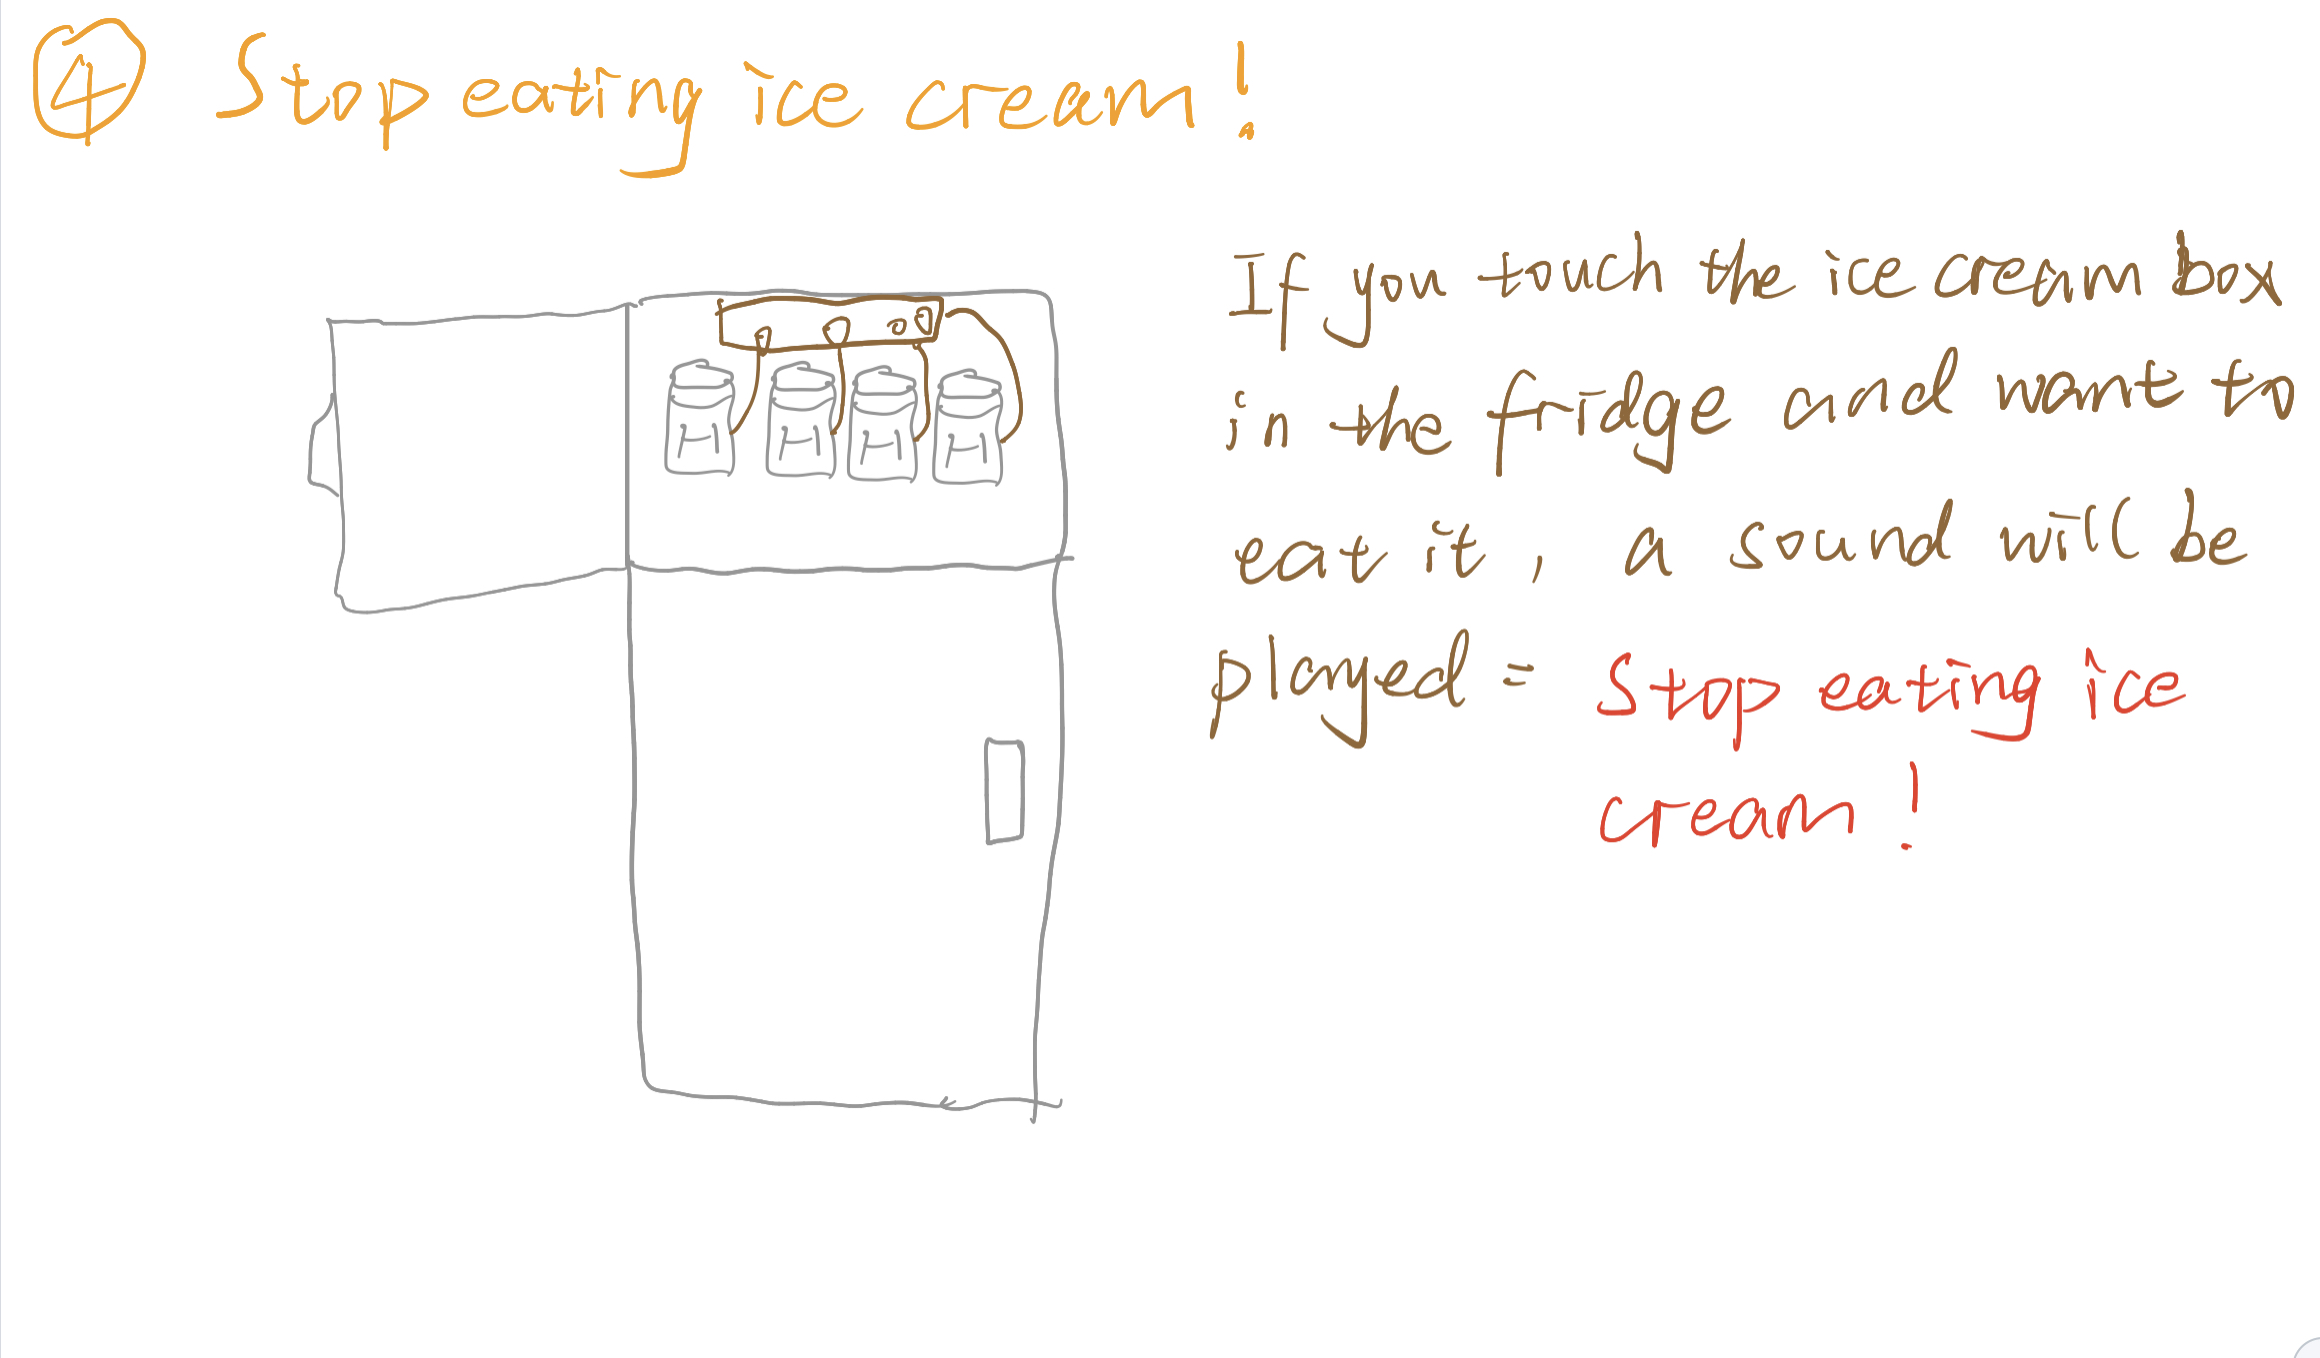 ④ Stop eating ice cream!
If you touch the ice cream box
in the fridge and want to
eat it, a sound will be
played = Stop eating ice
cream!
H H H H